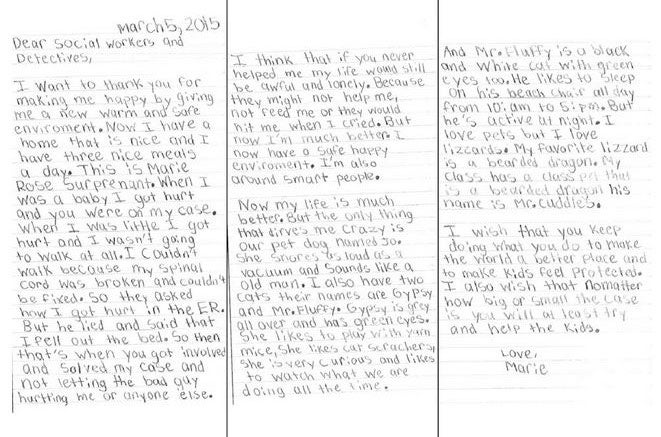 March 5, 2015
Dear Social workers and
Detectives,
I want to thank you for
making me happy by giving
me a new warm and safe
enviroment. Now I have a
home that is nice and I
have three nice meals
a day. This is Marie
Rose Surprenant. When I
was a baby I got hurt
and you were on my case.
When I was little I got
hurt and I wasn't going
to walk at all. I couldn't
walk because my spinal
cord was broken and couldn't
be fixed. So they asked
how I got hurt in the ER.
But he lied and said that
I fell out the bed. So then
that's when you got involved
and solved my case and
not letting the bad guy
hurtting me or anyone else.
I think that if you never
helped me my life would still
be awful and lonely. Because
they might not help me,
not feed me or they would
hit me when I cried. But
now I'm much better. I
now have a safe happy
enviroment. I'm also
around smart people.
Now my life is much
better. But the only thing
that dirves me crazy is
our pet dog named Jo.
She snores as loud as a
vacuum and sounds like a
old man. I also have two
cats their names are Gypsy
and Mr. Fluffy. Gypsy is grey
all over and has green eyes.
She likes to play with yarn
mice, she likes cat scrachers,
she is very curious and likes
to watch what we are
doing all the time.
And Mr. Fluffy is a black
and white cat with green
eyes too. He likes to sleep
on his beach chair all day
from 10:am to 5:pm. But
he's active at night. I
love pets but I love
lizzards. My favorite lizzard
is a bearded dragon. My
class has a class pet that
is a bearded dragon his
name is Mr. Cuddles.
I wish that you keep
doing what you do to make
the world a better place and
to make kids feel protected.
I also wish that nomatter
how big or small the case
is you will at least try
and help the kids.
Love,
Marie